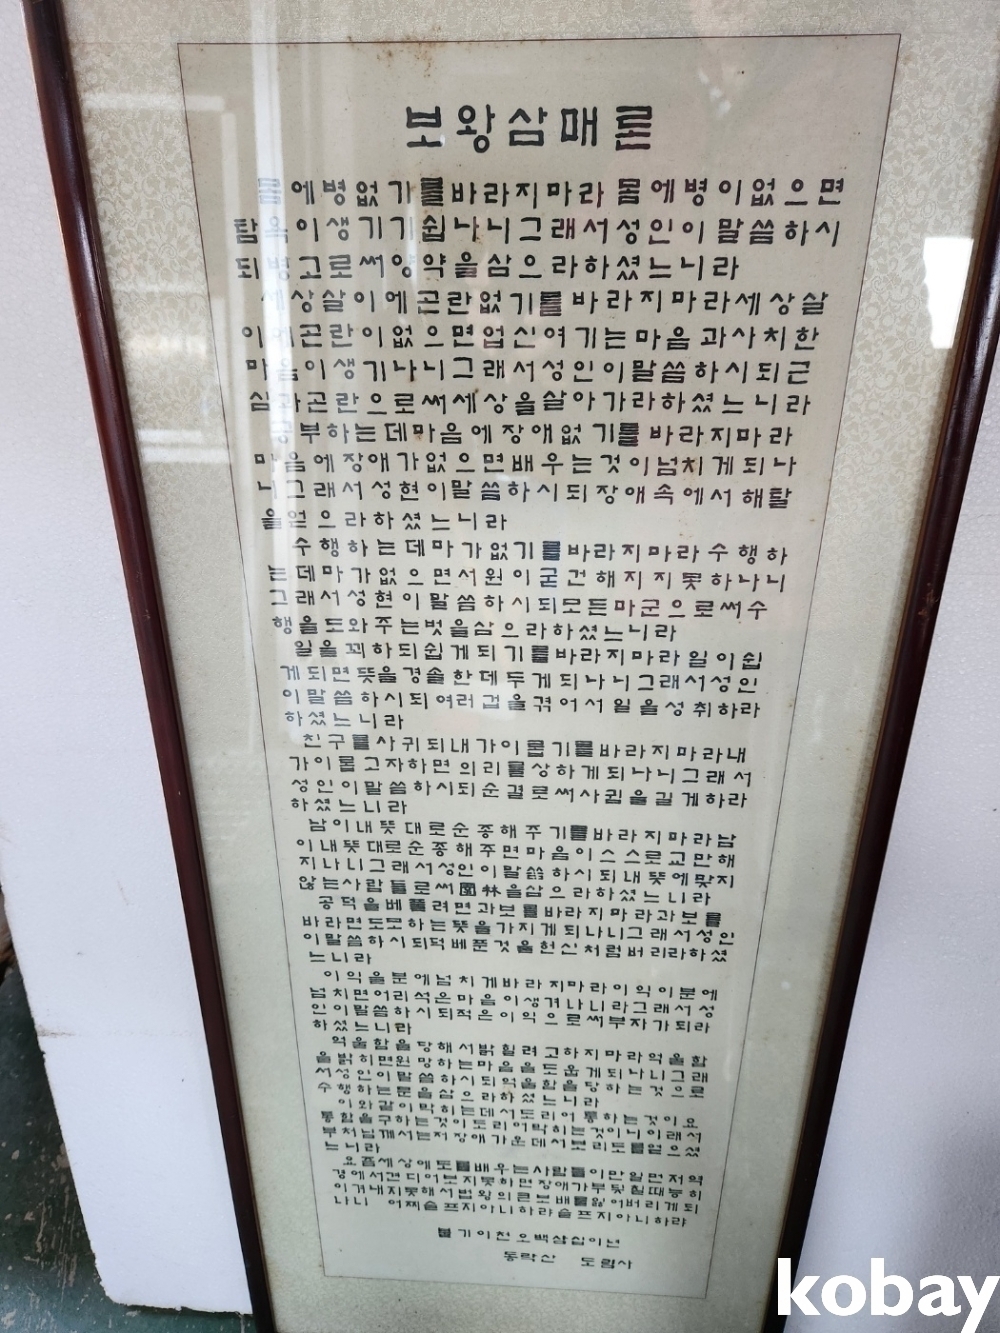 보왕삼매론
몸에병없기를바라지마라 몸에병이없으면
탐욕이생기기쉽나니그래서성인이말씀하시
되병고로써양약을삼으라하셨느니라
세상살이에곤란없기를바라지마라세상살
이에곤란이없으면업신여기는마음과사치한
마음이생기나니그래서성인이말씀하시되근
심과곤란으로써세상을살아가라하셨느니라
공부하는데마음에장애없기를바라지마라
마음에장애가없으면배우는것이넘치게되나
니그래서성현이말씀하시되장애속에서해탈
을얻으라하셨느니라
수행하는데마가없기를바라지마라수행하
는데마가없으면서원이굳건해지지못하나니
그래서성현이말씀하시되모든마군으로써수
행을도와주는벗을삼으라하셨느니라
일을꾀하되쉽게되기를바라지마라일이쉽
게되면뜻을경솔한데두게되나니그래서성인
이말씀하시되여러겁을겪어서일을성취하라
하셨느니라
친구를사귀되내가이롭기를바라지마라내
가이롭고자하면의리를상하게되나니그래서
성인이말씀하시되순결로써사귐을길게하라
하셨느니라
남이내뜻대로순종해주기를바라지마라남
이내뜻대로순종해주면마음이스스로교만해
지나니그래서성인이말씀하시되내뜻에맞지
않는사람들로써園林을삼으라하셨느니라
공덕을베풀려면과보를바라지마라과보를
바라면도모하는뜻을가지게되나니그래서성인
이말씀하시되덕베푼것을헌신처럼버리라하셨
느니라
이익을분에넘치게바라지마라이익이분에
넘치면어리석은마음이생겨나니라그래서성
인이말씀하시되적은이익으로써부자가되라
하셨느니라
억울함을당해서밝힐려고하지마라억울함
을밝히면원망하는마음을도웁게되나니그래
서성인이말씀하시되억울함을당하는것으로
수행하는문을삼으라하셨느니라
이와같이막히는데서도리어통하는것이요
통함을구하는것이도리어막히는것이니이래서
부처님께서는저장애가운데서보리도를얻으셨
느니라
요즘세상에도를배우는사람들이만일먼저역
경에서견디어보지못하면장애가부딪힐때능히
이겨내지못해서법왕의큰보배를잃어버리게되
나니 어찌슬프지아니하랴슬프지아니하랴
불기이천오백삼십이년
동락산 도림사
kobay